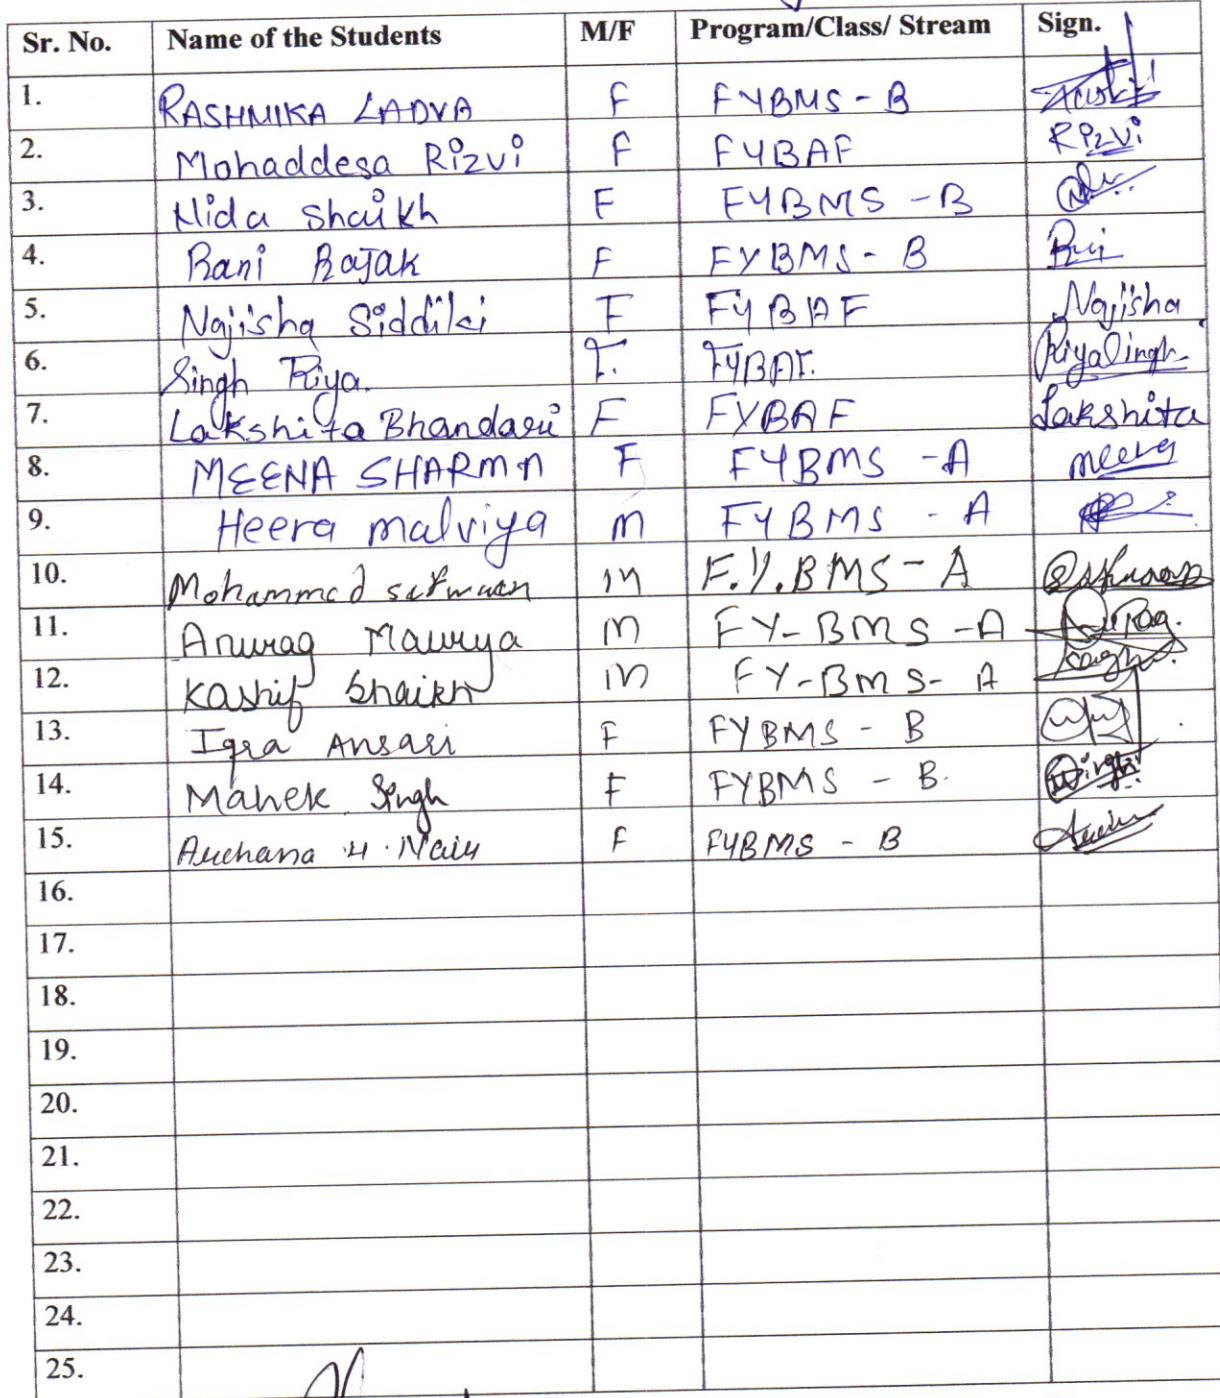 Sr. No. Name of the Students M/F Program/Class/ Stream Sign.
1. RASHMIKA LADVA F FYBMS - B
2. Mohaddesa Rizvi F FYBAF Rizvi
3. Nida Shaikh F FYBMS - B
4. Rani Rajak F FYBMS - B
5. Najisha Siddiki F FYBAF Najisha
6. Singh Riya. F. FYBAF. Riya Singh
7. Lakshita Bhandari F FYBAF Lakshita
8. MEENA SHARMA F FYBMS - A meena
9. Heera malviya m FYBMS - A
10. Mohammed m F.Y.BMS - A
11. Anurag Maurya m FY-BMS -A
12. Kashif Shaikh m FY-BMS- A
13. Iqra Ansari F FYBMS - B
14. Mahek Singh F FYBMS - B.
15. Archana H. Nair F FYBMS - B
16.
17.
18.
19.
20.
21.
22.
23.
24.
25.